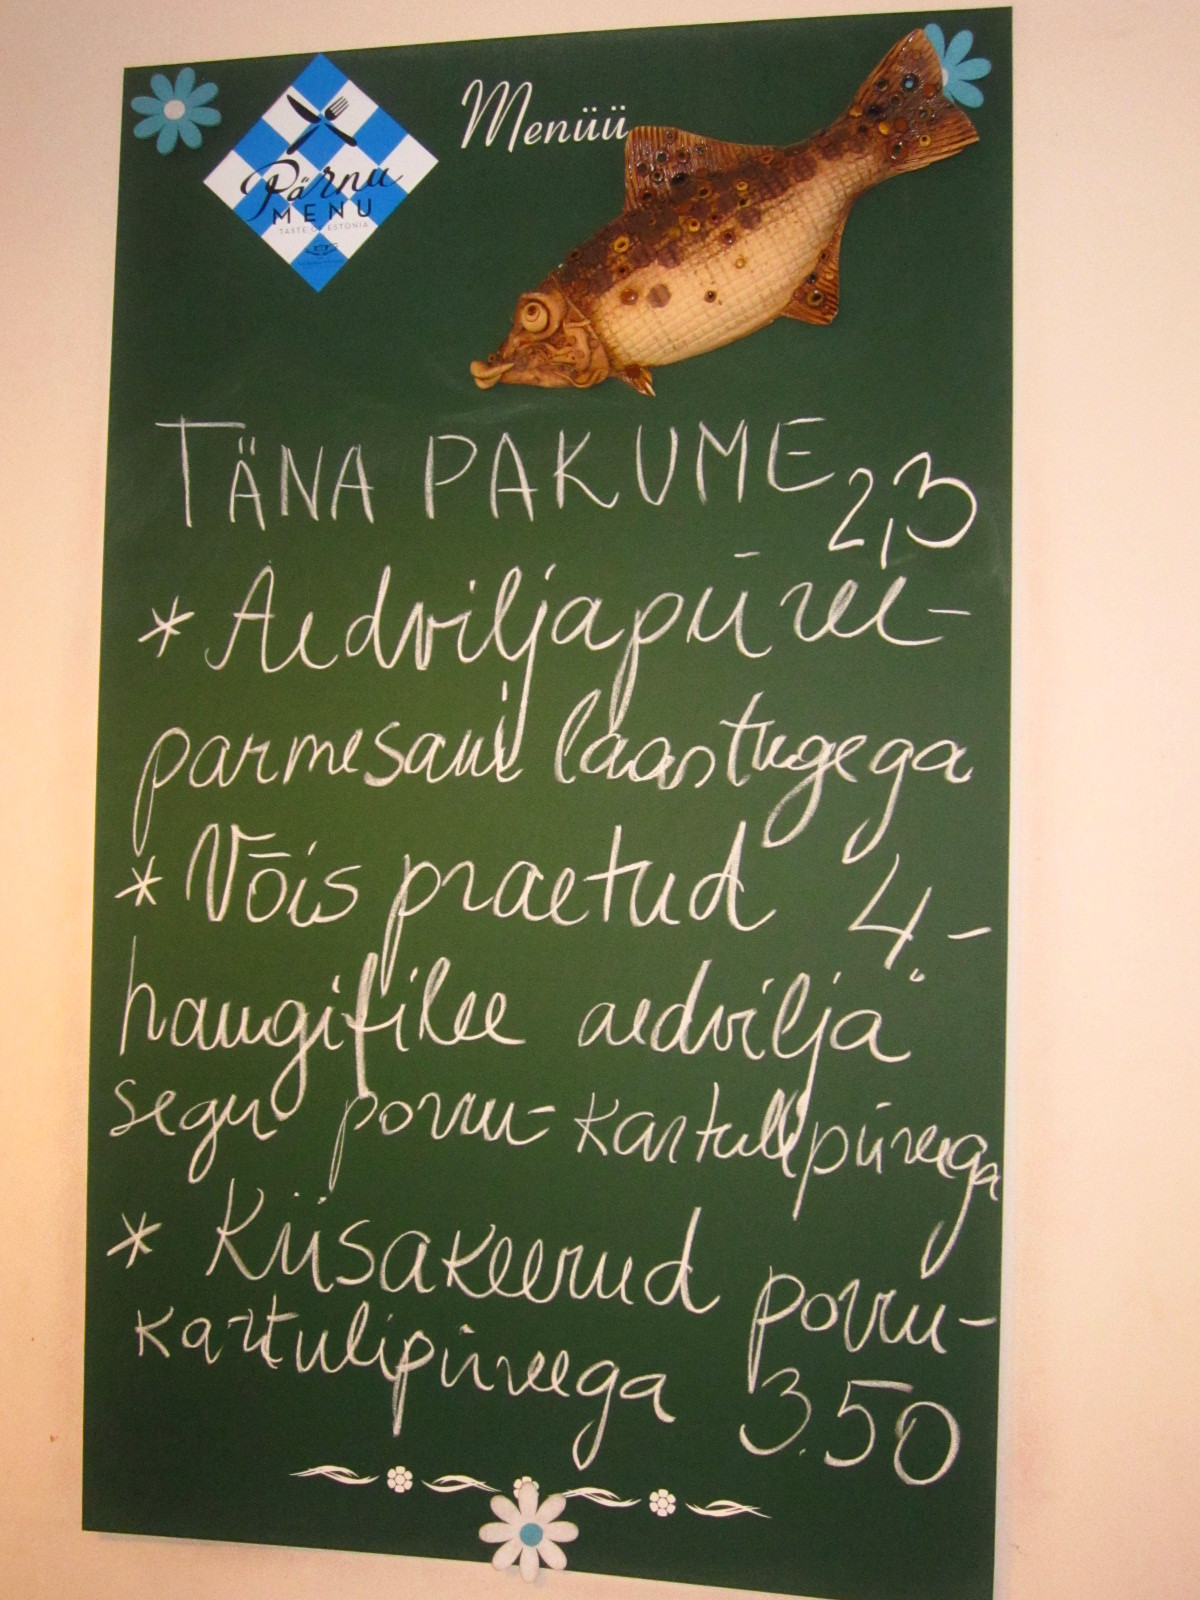 Menüü
Pärnu
MENU
TASTE OF ESTONIA
TÄNA PAKUME 2,3
* Aedviljapüree-
parmesani laastugega
* Võis praetud 4.-
haugifilee aedvilja
segu porru-kartulipüreega
* Kiisakeerud porru-
kartulipüreega 3.50